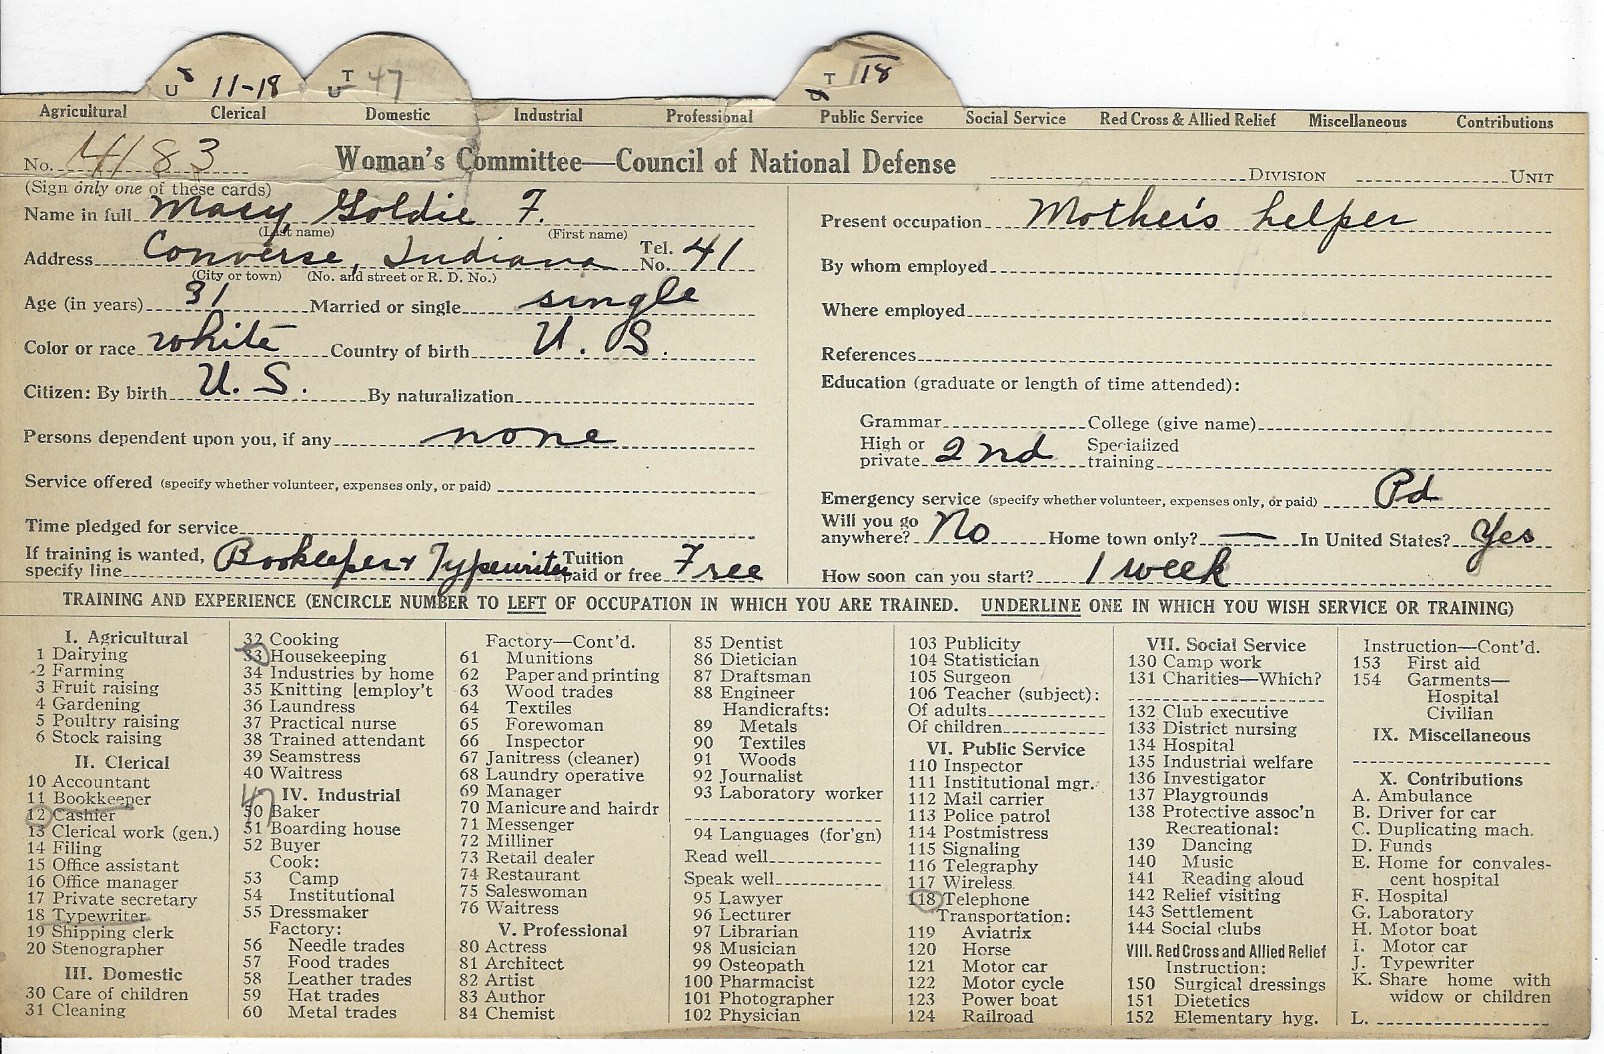 U 11-18 T U 47 T 118
Agricultural Clerical Domestic Industrial Professional Public Service Social Service Red Cross & Allied Relief Miscellaneous Contributions
No. 4183 Woman's Committee—Council of National Defense DIVISION UNIT
(Sign only one of these cards)
Name in full Macy Goldie F.
(Last name) (First name)
Address Converse, Indiana Tel. No. 41
(City or town) (No. and street or R. D. No.)
Age (in years) 31 Married or single single
Color or race white Country of birth U. S.
Citizen: By birth U. S. By naturalization
Persons dependent upon you, if any none
Service offered (specify whether volunteer, expenses only, or paid)
Time pledged for service
If training is wanted, specify line Bookkeeper & Typewriter Tuition paid or free Free
Present occupation Mother's helper
By whom employed
Where employed
References
Education (graduate or length of time attended):
Grammar College (give name)
High or private 2nd Specialized training
Emergency service (specify whether volunteer, expenses only, or paid) Pd
Will you go anywhere? No Home town only? — In United States? Yes
How soon can you start? 1 week
TRAINING AND EXPERIENCE (ENCIRCLE NUMBER TO LEFT OF OCCUPATION IN WHICH YOU ARE TRAINED. UNDERLINE ONE IN WHICH YOU WISH SERVICE OR TRAINING)
I. Agricultural
1 Dairying
2 Farming
3 Fruit raising
4 Gardening
5 Poultry raising
6 Stock raising
II. Clerical
10 Accountant
11 Bookkeeper
12 Cashier
13 Clerical work (gen.)
14 Filing
15 Office assistant
16 Office manager
17 Private secretary
18 Typewriter
19 Shipping clerk
20 Stenographer
III. Domestic
30 Care of children
31 Cleaning
32 Cooking
33 Housekeeping
34 Industries by home
35 Knitting [employ't
36 Laundress
37 Practical nurse
38 Trained attendant
39 Seamstress
40 Waitress
47
IV. Industrial
50 Baker
51 Boarding house
52 Buyer
Cook:
53 Camp
54 Institutional
55 Dressmaker
Factory:
56 Needle trades
57 Food trades
58 Leather trades
59 Hat trades
60 Metal trades
Factory—Cont'd.
61 Munitions
62 Paper and printing
63 Wood trades
64 Textiles
65 Forewoman
66 Inspector
67 Janitress (cleaner)
68 Laundry operative
69 Manager
70 Manicure and hairdr
71 Messenger
72 Milliner
73 Retail dealer
74 Restaurant
75 Saleswoman
76 Waitress
V. Professional
80 Actress
81 Architect
82 Artist
83 Author
84 Chemist
85 Dentist
86 Dietician
87 Draftsman
88 Engineer
Handicrafts:
89 Metals
90 Textiles
91 Woods
92 Journalist
93 Laboratory worker
94 Languages (for'gn)
Read well
Speak well
95 Lawyer
96 Lecturer
97 Librarian
98 Musician
99 Osteopath
100 Pharmacist
101 Photographer
102 Physician
103 Publicity
104 Statistician
105 Surgeon
106 Teacher (subject):
Of adults
Of children
VI. Public Service
110 Inspector
111 Institutional mgr.
112 Mail carrier
113 Police patrol
114 Postmistress
115 Signaling
116 Telegraphy
117 Wireless
118 Telephone
Transportation:
119 Aviatrix
120 Horse
121 Motor car
122 Motor cycle
123 Power boat
124 Railroad
VII. Social Service
130 Camp work
131 Charities—Which?
132 Club executive
133 District nursing
134 Hospital
135 Industrial welfare
136 Investigator
137 Playgrounds
138 Protective assoc'n
Recreational:
139 Dancing
140 Music
141 Reading aloud
142 Relief visiting
143 Settlement
144 Social clubs
VIII. Red Cross and Allied Relief
Instruction:
150 Surgical dressings
151 Dietetics
152 Elementary hyg.
Instruction—Cont'd.
153 First aid
154 Garments—
Hospital
Civilian
IX. Miscellaneous
X. Contributions
A. Ambulance
B. Driver for car
C. Duplicating mach.
D. Funds
E. Home for convales-
cent hospital
F. Hospital
G. Laboratory
H. Motor boat
I. Motor car
J. Typewriter
K. Share home with
widow or children
L.